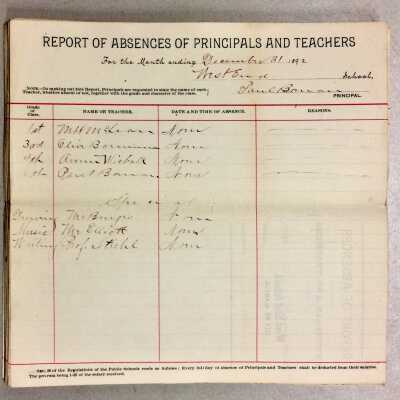 REPORT OF ABSENCES OF PRINCIPALS AND TEACHERS
For the Month ending December 31 1892
West End School,
NOTE.—On making out this Report, Principals are requested to state the name of each Teacher, whether absent or not, together with the grade and character of the class.
Paul Boman
PRINCIPAL.
Grade of Class. NAME OF TEACHER. DATE AND TIME OF ABSENCE. REASONS.
1st None
3rd Eliza None
Annie None
Paul Boman None
Drawing Mr Burgis None
Music Mr Elliott None
Writing Prof. None
Sec. 38 of the Regulations of the Public Schools reads as follows: Every full day of absence of Principals and Teachers shall be deducted from their salaries. The pro rata being 1-20 of the salary received.